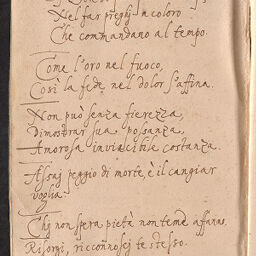 Nel far preghi a coloro
Che commandano al tempo.
Come l'oro nel fuoco,
Così la fede nel dolor s'affina.
Non può senza fierezza,
Dimostrar sua possanza,
Amorosa invincibile costanza.
Assai peggio di morte è il cangiar
voglia.
Chi non spera pietà non teme affanno.
Risorgi, riconnosci te stesso.